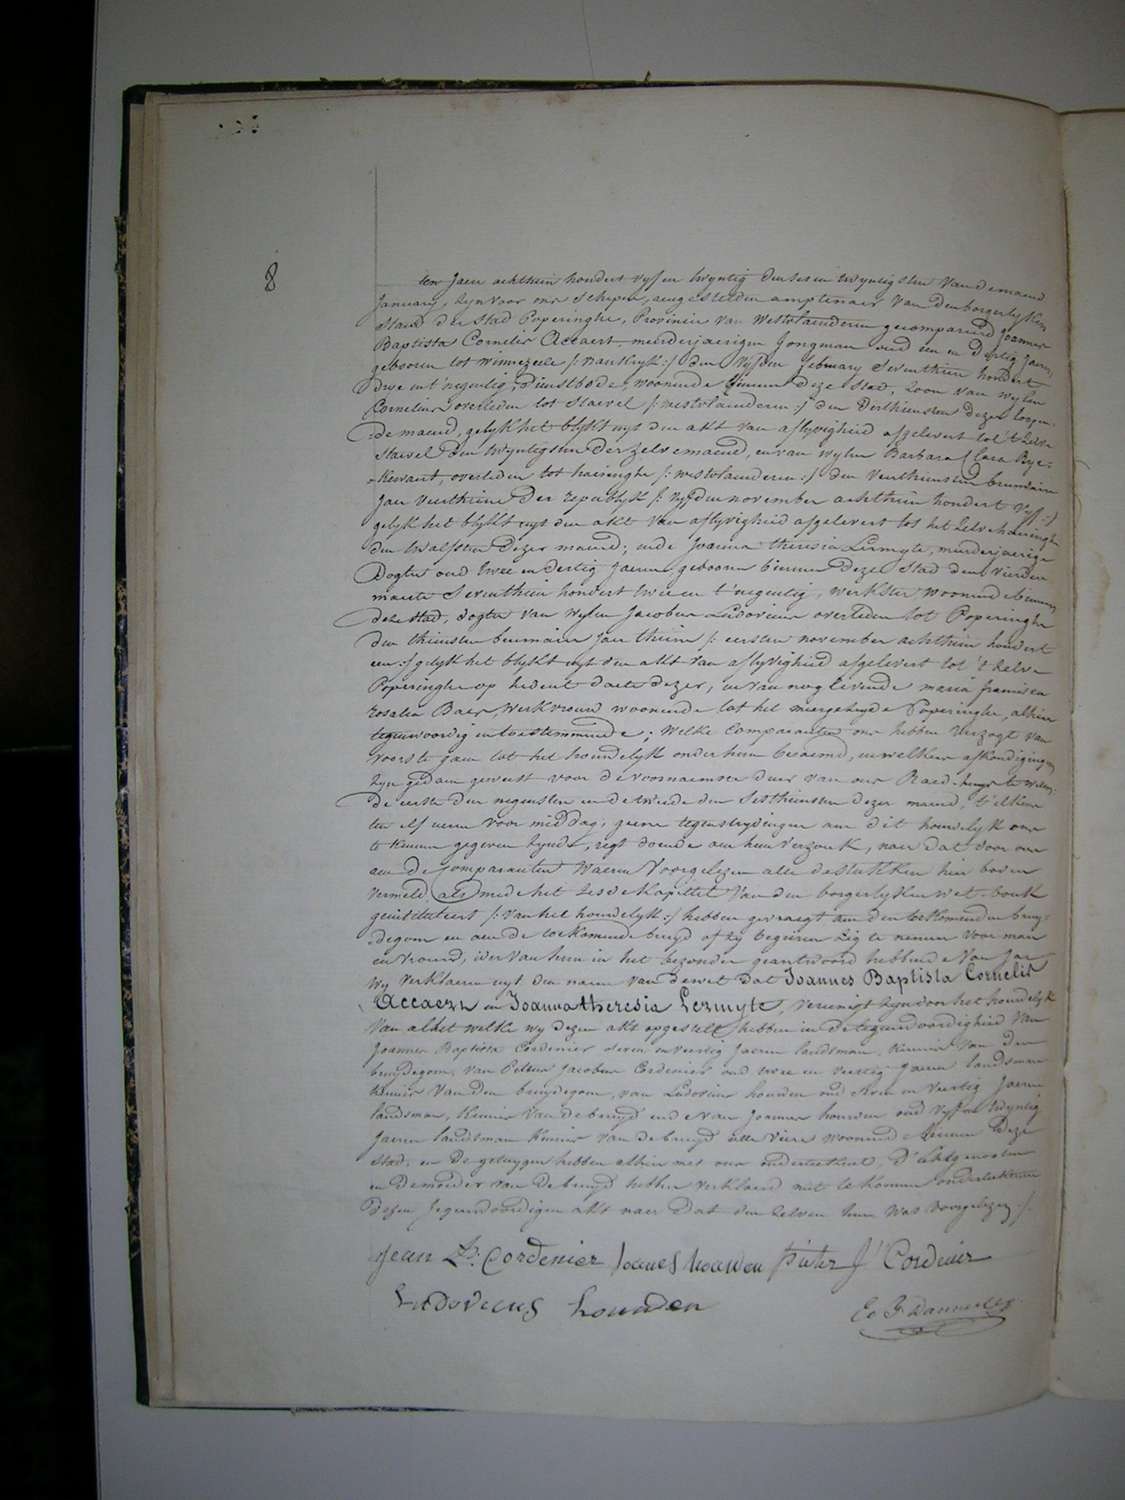 8
ten Jaere achthien hondert vyf en twyntig den ses en twyntigsten van de maend
January, zyn voor ons schepen, aengestelden amptenaer van den borgerlyken
staend der stad Poperinghe, Provincie van Westvlaenderen gecompareerd Joannes
Baptista Cornelis Accaert, meerderjaerigen Jongman oud een en dertig Jaeren,
gebooren tot Winnezeele /: vrankryk :/ den vyfden february seventhien hondert
drie en t'negentig, dienstbode, woonende binnen deze stad, zoon van wylen
Cornelius overleden tot Stavel /: westvlaenderen :/ den derthiensten dezer loopen-
de maend, gelyk het blykt uyt den akt van aflyvigheid afgelevert tot 't zelve
Stavel den twyntigsten der zelve maend, en van wylen Barbara Clara Rye-
kewaert, overleden tot haringhe /: westvlaenderen :/ den veerthiensten brumaire
Jaer veerthiene der republyk /: vyfden november achthien hondert vyf :/
gelyk het blykt uyt den akt van aflyvigheid afgelevert tot het zelve haringhe
den twalfsten dezer maend; ende Joanna theresia Lermyte, meerderjaerige
dogter oud twee en dertig Jaeren gebooren binnen deze stad den vierden
maerte seventhien hondert twee en t'negentig, werkster woonende binnen
deze stad, dogter van wylen Jacobus Ludovicus overleden tot Poperinghe
den thiensten brumaire Jaer thiene /: eersten november achthien hondert
een :/ gelyk het blykt uyt den akt van aflyvigheid afgelevert tot 't zelve
Poperinghe op hedent daete dezer, en van nog levende maria francisca
rosalia Baes, werkvrouw woonende tot het meergezeyde Poperinghe, alhier
tegenwoordig en toestemmende; Welke Comparanten ons hebben verzogt van
voorts te gaen tot het houwelyk onder hun beraemd, en welkers afkondigingen
zyn gedaen geweest voor de voornaemste deur van ons Raed-huys te weten
de eerste den negensten en de tweede den sesthiensten dezer maend, t'elkens
ten elf ueren voor middag, geene tegenstrydingen aen dit houwelyk ons
te kennen gegeven zynde, regt doende aen hun verzoek, naer dat door ons
aen de Comparanten waeren voorgelezen alle de stukken hier boven
vermeld, als mede het sesde Kapittel van den borgerlyken wet-bouk
geintituleert /: van het houwelyk :/ hebben gevraegt aen den toekomenden bruy-
degom en aen de toekomende bruyd of zy begeiren zig te nemen voor man
en vrouw, ider van hun in het bezonder geantwoord hebbende van Jae
Wy verklaeren uyt den naem van de wet dat Joannes Baptista Cornelis
Accaert en Joanna theresia Lermyte, vereenigt zyn door het houwelyk
Van al het welke wy dezen akt opgestelt hebben in de tegenwoordigheid van
Joannes Baptista Cordenier seven en veertig Jaeren landsman, kennis van den
bruydegom, van Petrus Jacobus Cordenier oud twee en veertig Jaeren landsman
kennis van den bruydegom, van Ludovicus houwen oud dry en veertig Jaeren
landsman, kennis van de bruyd ende van Joannes houwen oud vyf en twyntig
Jaeren landsman kennis van de bruyd alle viere woonende binnen deze
stad, en de getuygen hebben alhier met ons onderteekent, d'echtgenooten
en de moeder van de bruyd hebben verklaerd niet te konnen onderteekenen
dezen tegenwoordigen akt naer dat den zelven hun was voorgelezen :/.
Jean Bt. Cordenier Joannes houwen Pieter J. Cordenier
Ludovicus houwen